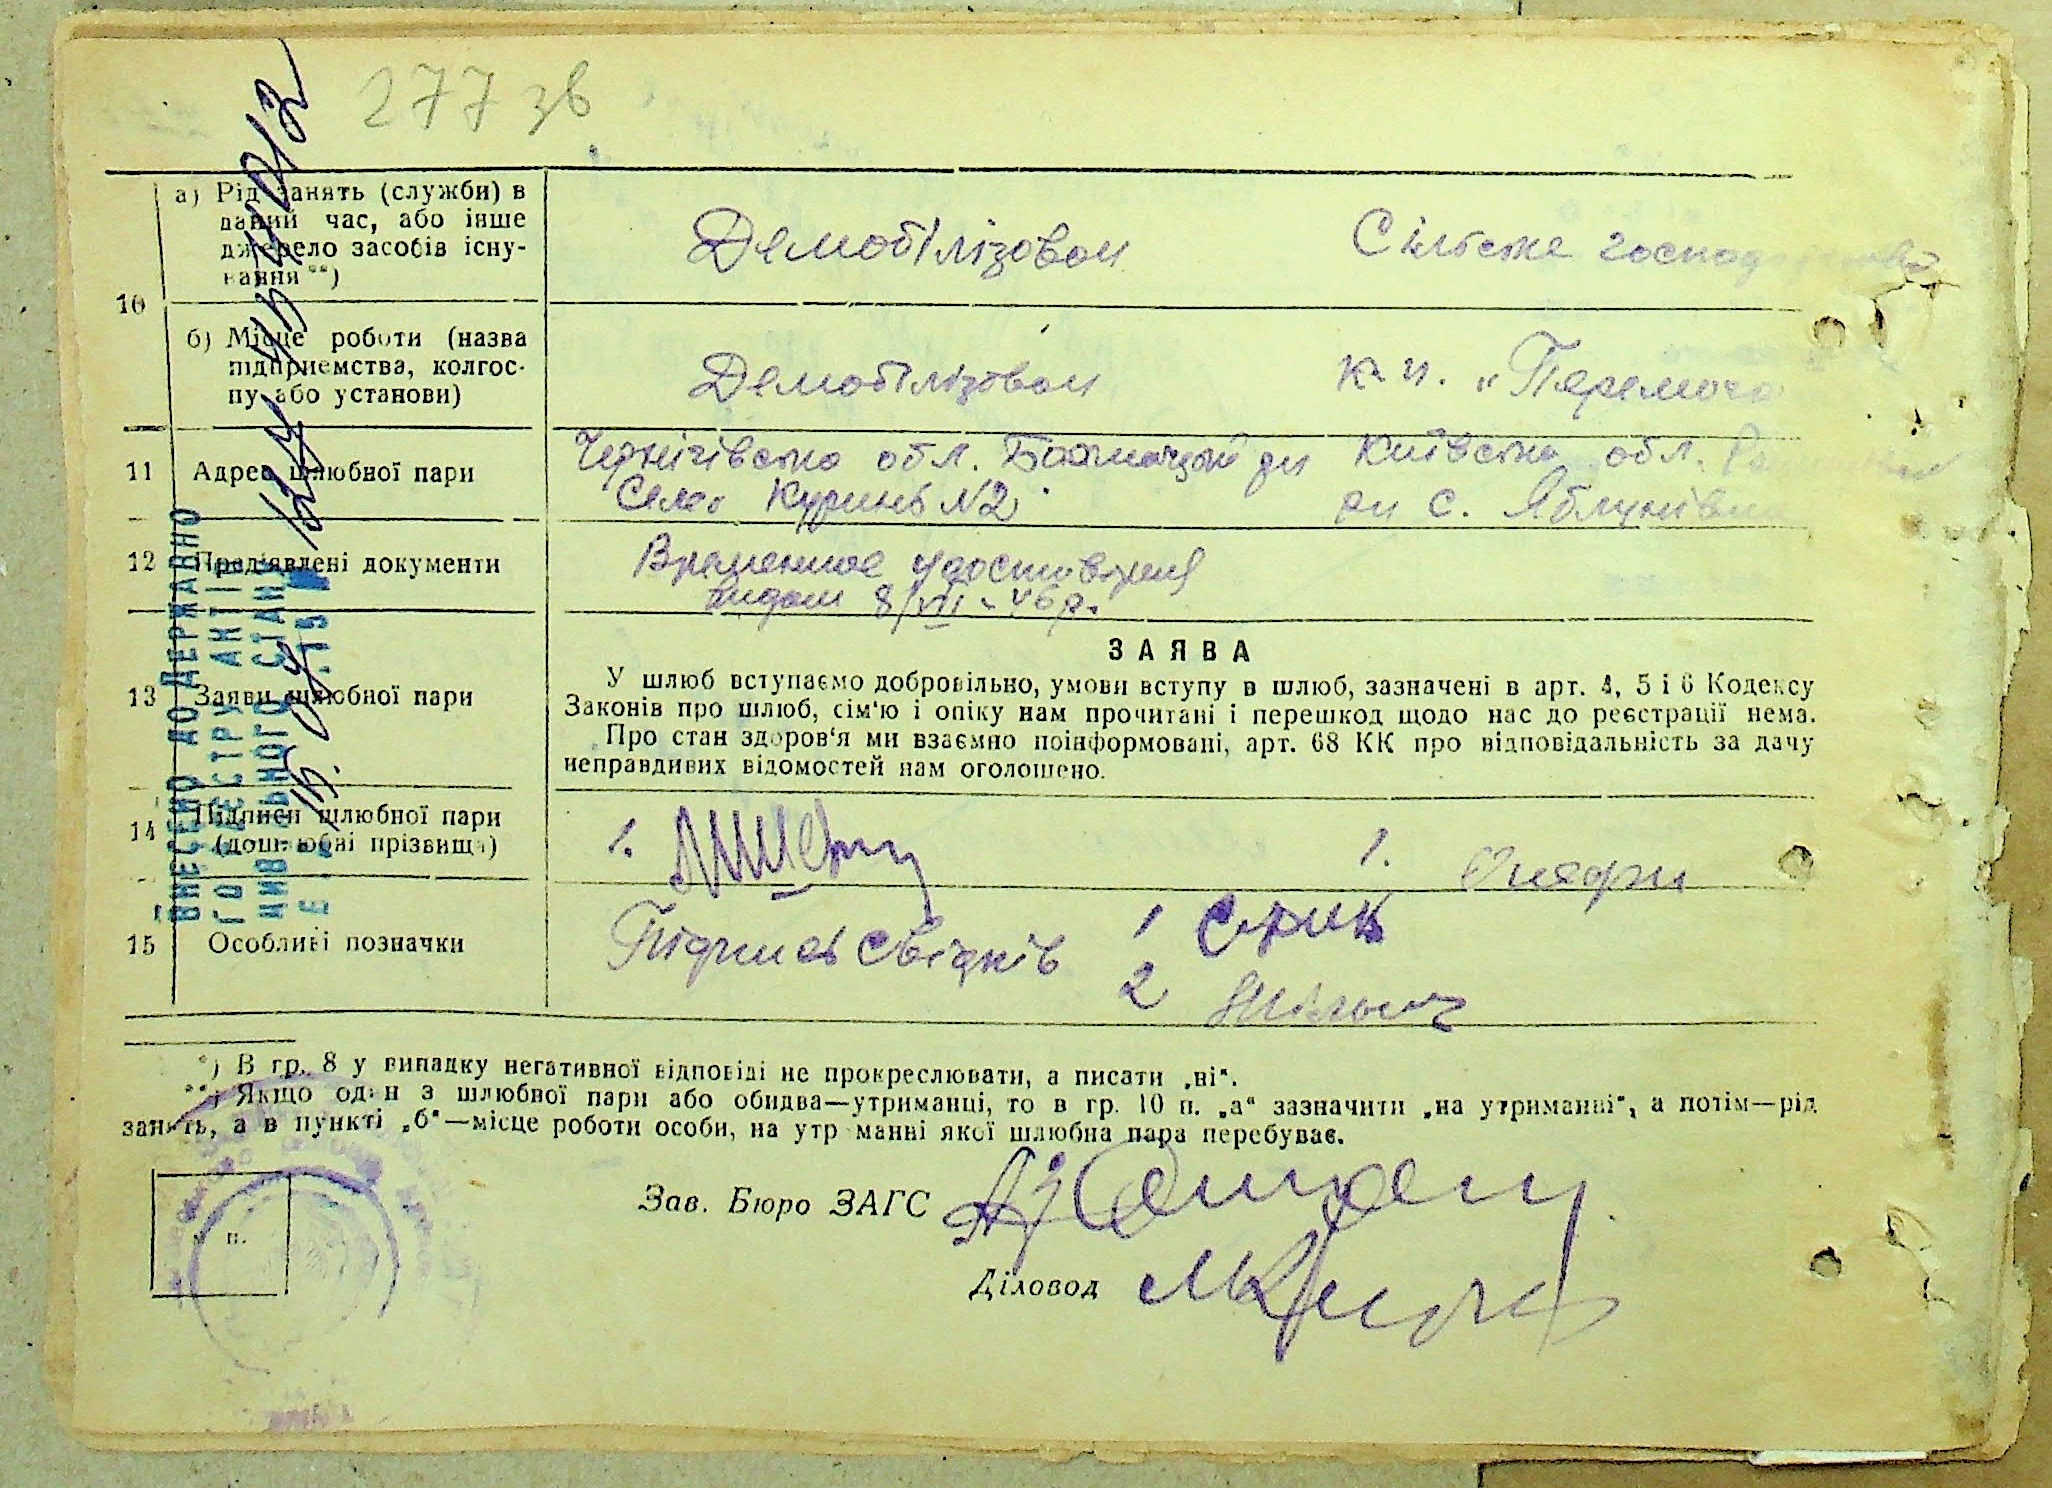 277 зв
10
а) Рід занять (служби) в
даний час, або інше
джерело засобів існу-
вання**)
Демобілізован
Сільське господарство
б) Місце роботи (назва
підприємства, колгос-
пу або установи)
Демобілізован
к-п. „Перемога
11 Адреа шлюбної пари
Чернігівська обл. Бахмацький рн
Село Куринь №2
Київська обл.
рн с. Яблунівка
12 Пред'явлені документи
Временное удостоверения
видан 8/VII-46р.
13 Заяви шлюбної пари
ЗАЯВА
У шлюб вступаємо добровільно, умови вступу в шлюб, зазначені в арт. 4, 5 і 6 Кодексу
Законів про шлюб, сім'ю і опіку нам прочитані і перешкод щодо нас до реєстрації нема.
Про стан здоров'я ми взаємно поінформовані, арт. 68 КК про відповідальність за дачу
неправдивих відомостей нам оголошено.
14 Підписи шлюбної пари
(дошлюбні прізвища)
1.
1.
15 Особливі позначки
Підписи свідків 1
2
ВНЕСЕНО ДО ДЕРЖАВНО
ГО РЕЄСТРУ АКТІВ
ЦИВІЛЬНОГО СТАНУ
*) В гр. 8 у випадку негативної відповіді не прокреслювати, а писати „ні“.
**) Якщо один з шлюбної пари або обидва—утриманці, то в гр. 10 п. „а“ зазначити „на утриманні“, а потім—рід
занять, а в пункті „б“—місце роботи особи, на утриманні якої шлюбна пара перебуває.
м. п.
Зав. Бюро ЗАГС
Діловод